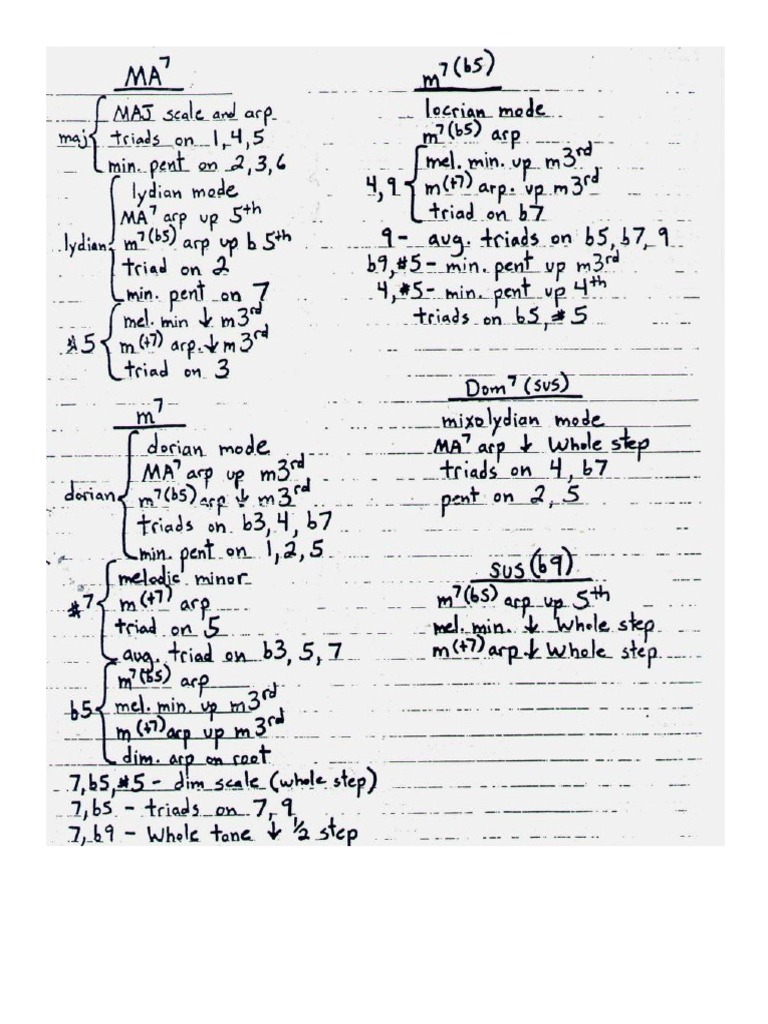 MA7
maj { MAJ scale and arp
triads on 1,4,5
min. pent on 2,3,6
lydian { lydian mode
MA7 arp up 5th
m7(b5) arp up b5th
triad on 2
min. pent on 7
#5 { mel. min ↓ m3rd
m(+7) arp. ↓ m3rd
triad on 3
m7
dorian { dorian mode
MA7 arp up m3rd
m7(b5) arp ↓ m3rd
triads on b3, 4, b7
min. pent on 1,2,5
#7 { melodic minor
m(+7) arp
triad on 5
aug. triad on b3, 5, 7
b5 { m7(b5) arp
mel. min. up m3rd
m(+7) arp up m3rd
dim. arp on root
7, b5, #5 - dim scale (whole step)
7, b5 - triads on 7, 9
7, b9 - Whole tone ↓ ½ step
m7(b5)
locrian mode
m7(b5) arp
4,9 { mel. min. up m3rd
m(+7) arp. up m3rd
triad on b7
9 - aug. triads on b5, b7, 9
b9, #5 - min. pent up m3rd
4, #5 - min. pent up 4th
triads on b5, #5
Dom7(sus)
mixolydian mode
MA7 arp ↓ Whole step
triads on 4, b7
pent on 2, 5
sus(b9)
m7(b5) arp up 5th
mel. min. ↓ Whole step
m(+7) arp ↓ Whole step